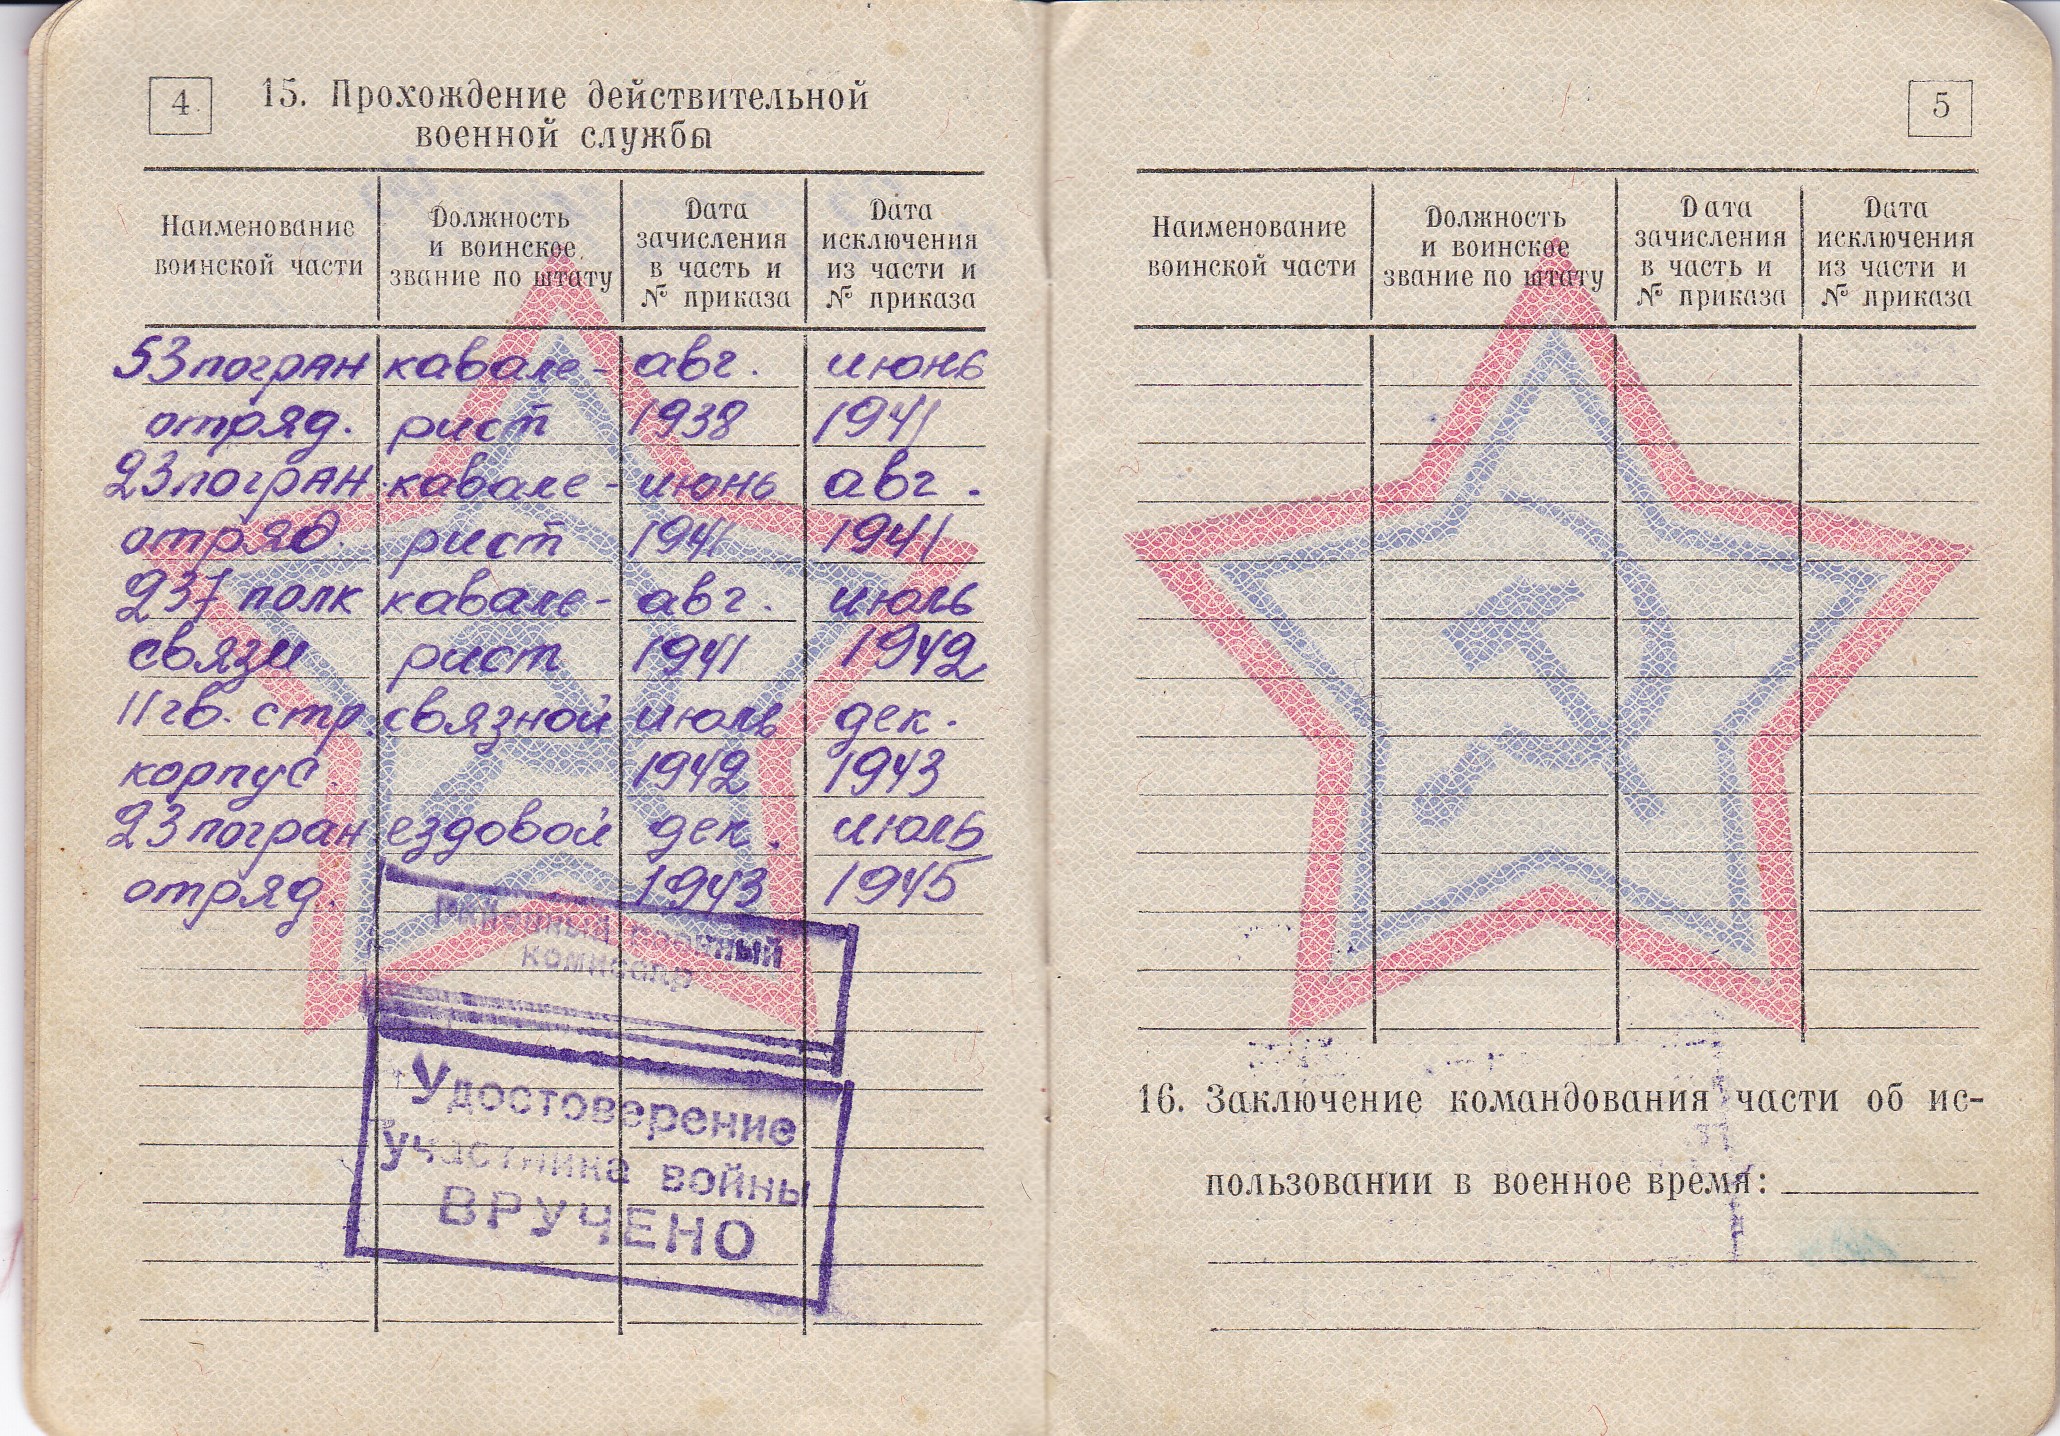 4
15. Прохождение действительной
военной службы
Наименование воинской части
Должность и воинское звание по штату
Дата зачисления в часть и № приказа
Дата исключения из части и № приказа
53 погран кавале- авг. июнь
отряд. рист 1938 1941
23 погран. кавале- июнь авг.
отряд. рист 1941 1941
237 полк кавале- авг. июль
связи рист 1941 1942
11 гв. стр. связной июль дек.
корпус 1942 1943
23 погран. ездовой дек. июль
отряд. 1943 1945
районный военный
комиссар
Удостоверение
участника войны
ВРУЧЕНО
5
Наименование воинской части
Должность и воинское звание по штату
Дата зачисления в часть и № приказа
Дата исключения из части и № приказа
16. Заключение командования части об ис-
пользовании в военное время: